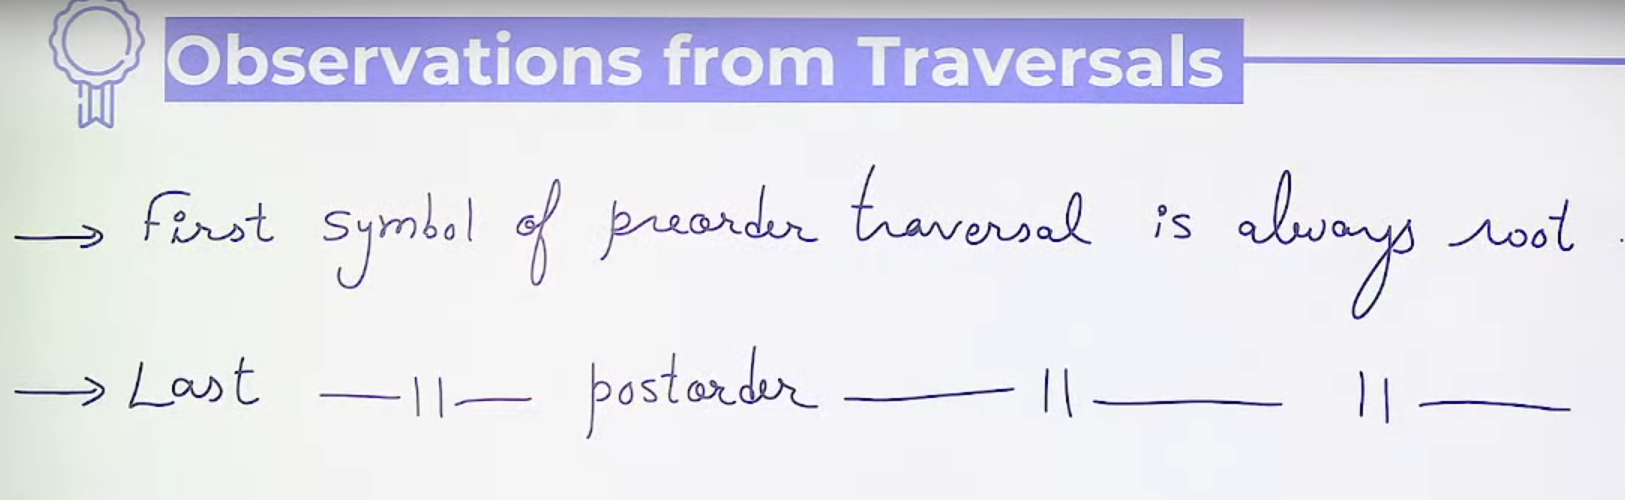 Observations from Traversals
→ First symbol of preorder traversal is always root.
→ Last —||— postorder ——||—— ||——